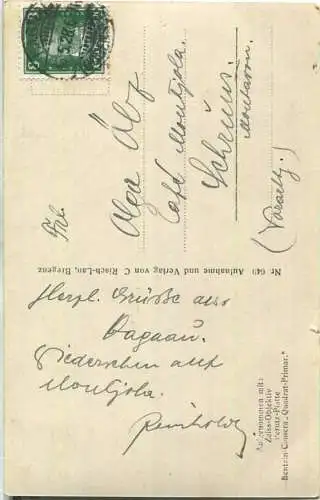 Frl.
OlgaÖlz
Café Montjola
Schruns.
Montavon.
(Vorarlbg.)
Nr 649 Aufnahme und Verlag von C Risch-Lau, Bregenz
Herzl. Grüsse aus
Wiedersehen auf
Montjola.
Reinhold
Aufgenommen mit:
Zeiss-Objektiv
Perutz-Platte
Bentzin-Camera „Quadrat-Primar."